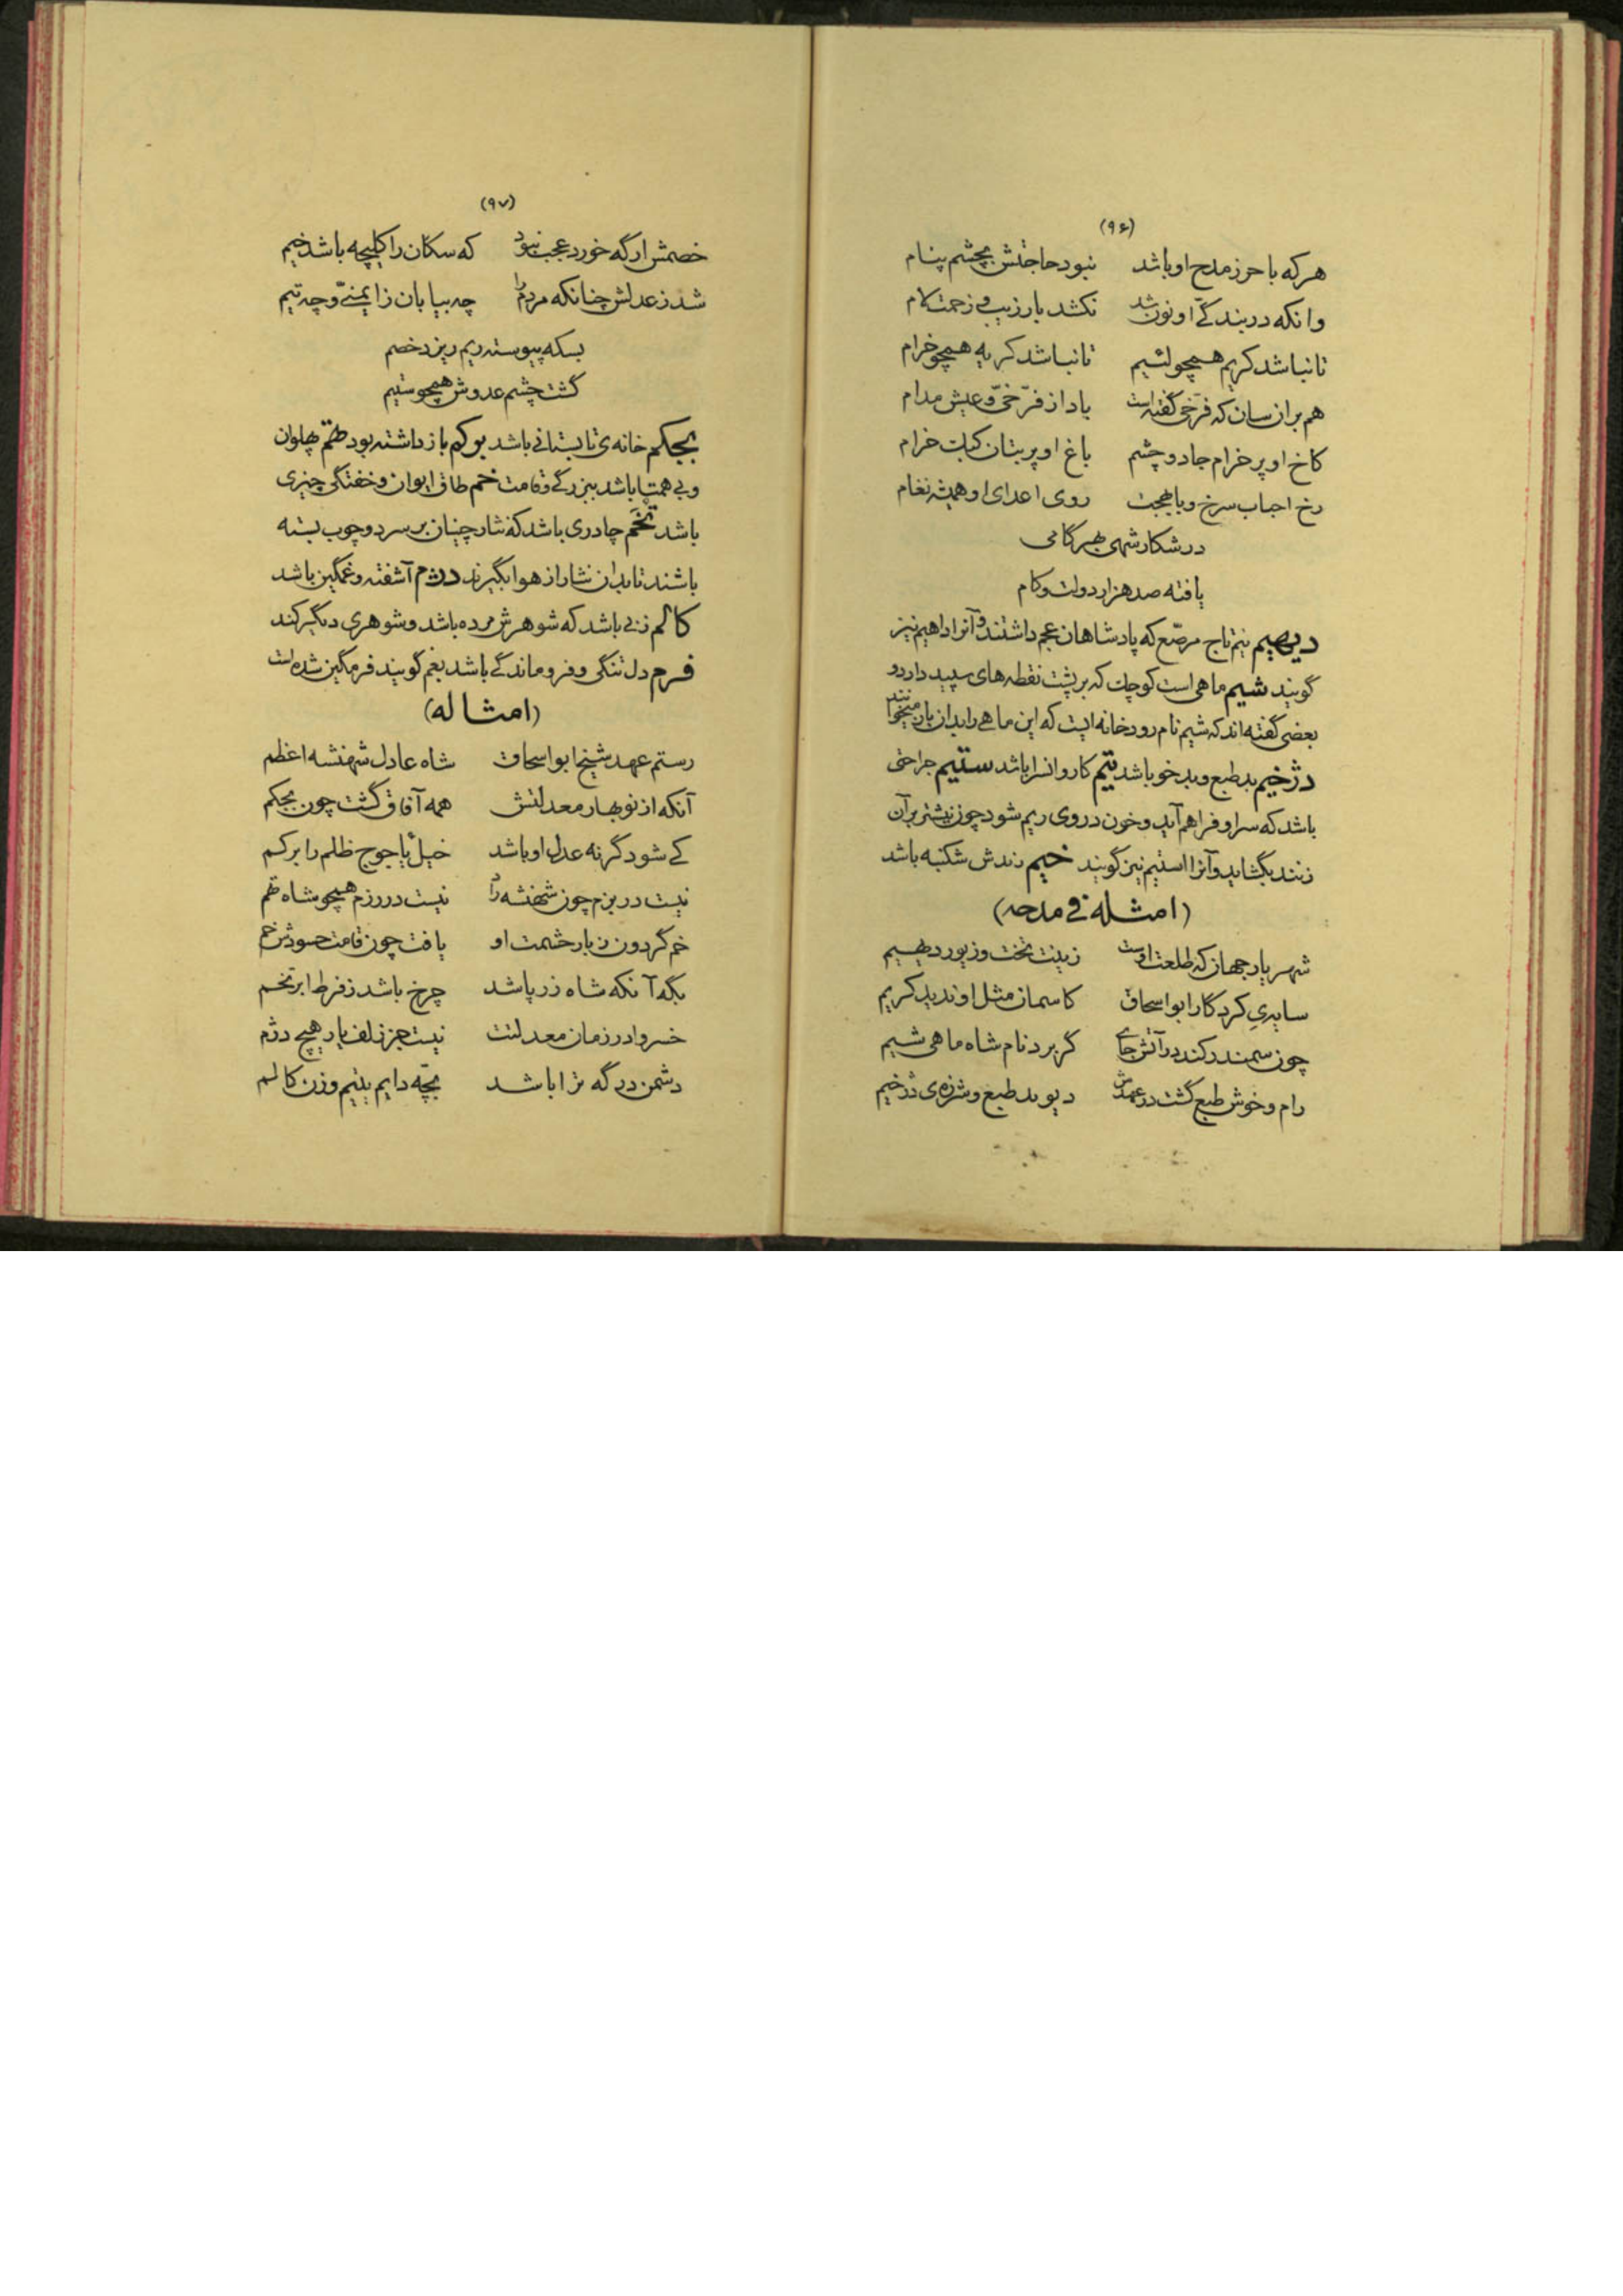 (۹۶)
هر که با حرز مدح او باشد نبود حاجتش بچشم پنام
وانکه در بندگی او نون شد نکشد بار زیب و زحمت لام
تا نباشد کریم همچو لئیم تا نباشد کریه همچو خرام
هم بر انسان که فرّخی گفته است باد از فرّخی و عیش مدام
کاخ او پر خرام جادو چشم باغ او پر بتان کبک خرام
رخ احباب سرخ و با بهجت روی اعدای او همیشه نغام
در شکار شهی بهر گامی
یافته صد هزار دولت و کام
دیهیم نیم تاج مرصّع که پادشاهان عجم داشتند و آنرا داهیم نیز
گویند شیم ماهی است کوچک که بر پشت نقطه‌های سپید دارد و
بعضی گفته‌اند که شیم نام رودخانه ایست که این ماهی را بدان باز میخوانند
دژخیم بد طبع و بد خو باشد تیم کاروانسرا باشد ستیم جراحتی
باشد که سر او فراهم آید و خون در وی ریم شود چون نیشتر بر آن
زنند بگشاید و آنرا استیم نیز گویند خیم زندش شکنبه باشد
(امثله فی مدحه)
شهریار جهان که طلعت اوست زینت تخت و زیور دیهیم
سایهٔ کردگار ابواسحاق کاسمان مثل او ندید کریم
چون سمندر کند در آتش جای گر برد نام شاه ماهی شیم
رام و خوش طبع گشت در عهدش دیو بد طبع و شرزه‌ی دژخیم
(۹۷)
خصمش ار گه خورد عجب نبود که سکان را کلیچه باشد خیم
شد ز عدلش چنانکه مردم را چه بیابان ز ایمنی و چه تیم
بسکه پیوسته ریم ریزد خصم
گشت چشم عدوش همچو ستیم
بجکم خانه‌ی تابستانی باشد برکم باز داشته بود تهم پهلوان
و بی همتا باشد ببزرگی و قامت خم طاق ایوان و خفتگی چیزی
باشد تخم چادری باشد که نثار چینان بر سر دو چوب بسته
باشند تا بدان نثار از هوا بگیرند دژم آشفته و غمگین باشد
کالم زنی باشد که شوهرش مرده باشد و شوهری دیگر کند
فرم دل تنگی و فروماندگی باشد بغم گویند فرمگین شده است
(امثاله)
رستم عهد شیخ ابواسحاق شاه عادل شهنشه اعظم
آنکه از نوبهار معدلتش همه آفاق گشت چون بجکم
کی شود گر نه عدل او باشد خیل یأجوج ظلم را برکم
نیست در بزم چون شهنشه را نیست در رزم همچو شاه تهم
خم گردون ز بار حشمت او یافت چون قامت حسودش خم
بگه آنکه شاه زر پاشد چرخ باشد ز فرط ابر تخم
خسروا در زمان معدلتت نیست جز زلف یار هیچ دژم
دشمن درگه ترا باشد بچّه دایم یتیم و زن کالم